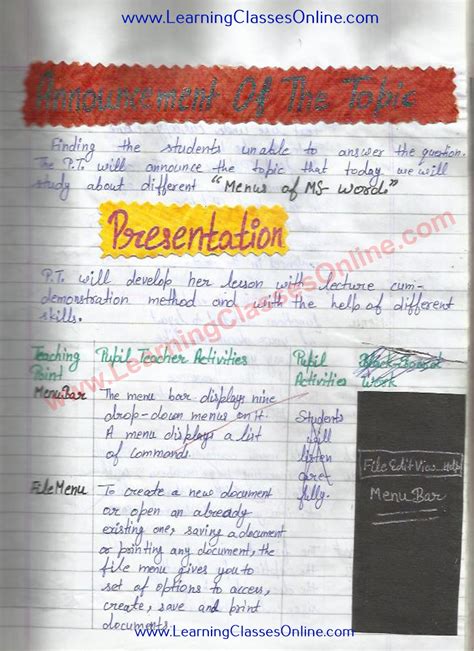 www.LearningClassesOnline.com
Announcement Of The Topic
Finding the students unable to answer the question.
The P.T. will announce the topic that today we will
study about different "Menus of MS-Word."
Presentation
www.LearningClassesOnline.com
P.T. will develop her lesson with lecture cum-
demonstration method and with the help of different
skills.
Teaching Point
Pupil Teacher Activities
Pupil Activities
Black-Board Work
Menu Bar
The menu bar displays nine
drop-down menus on it.
A menu displays a list
of commands.
Students
will
listen
care
fully.
File Edit View Help
Menu Bar
File Menu
To create a new document
or open an already
existing one, saving a document
or printing any document, the
file menu gives you to
set of options to access,
create, save and print
documents.
www.LearningClassesOnline.com